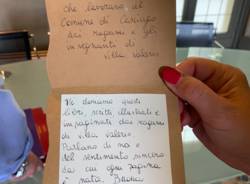 che lavorano al
Comune di
dai ragazzi e gli
insegnanti di
villa valerio
Vi doniamo questi
libri, scritti illustrati e
impaginati dai ragazzi
di villa valerio
Parlano di noi e
del sentimento sincero
da cui ogni pagina
è nata. Buona